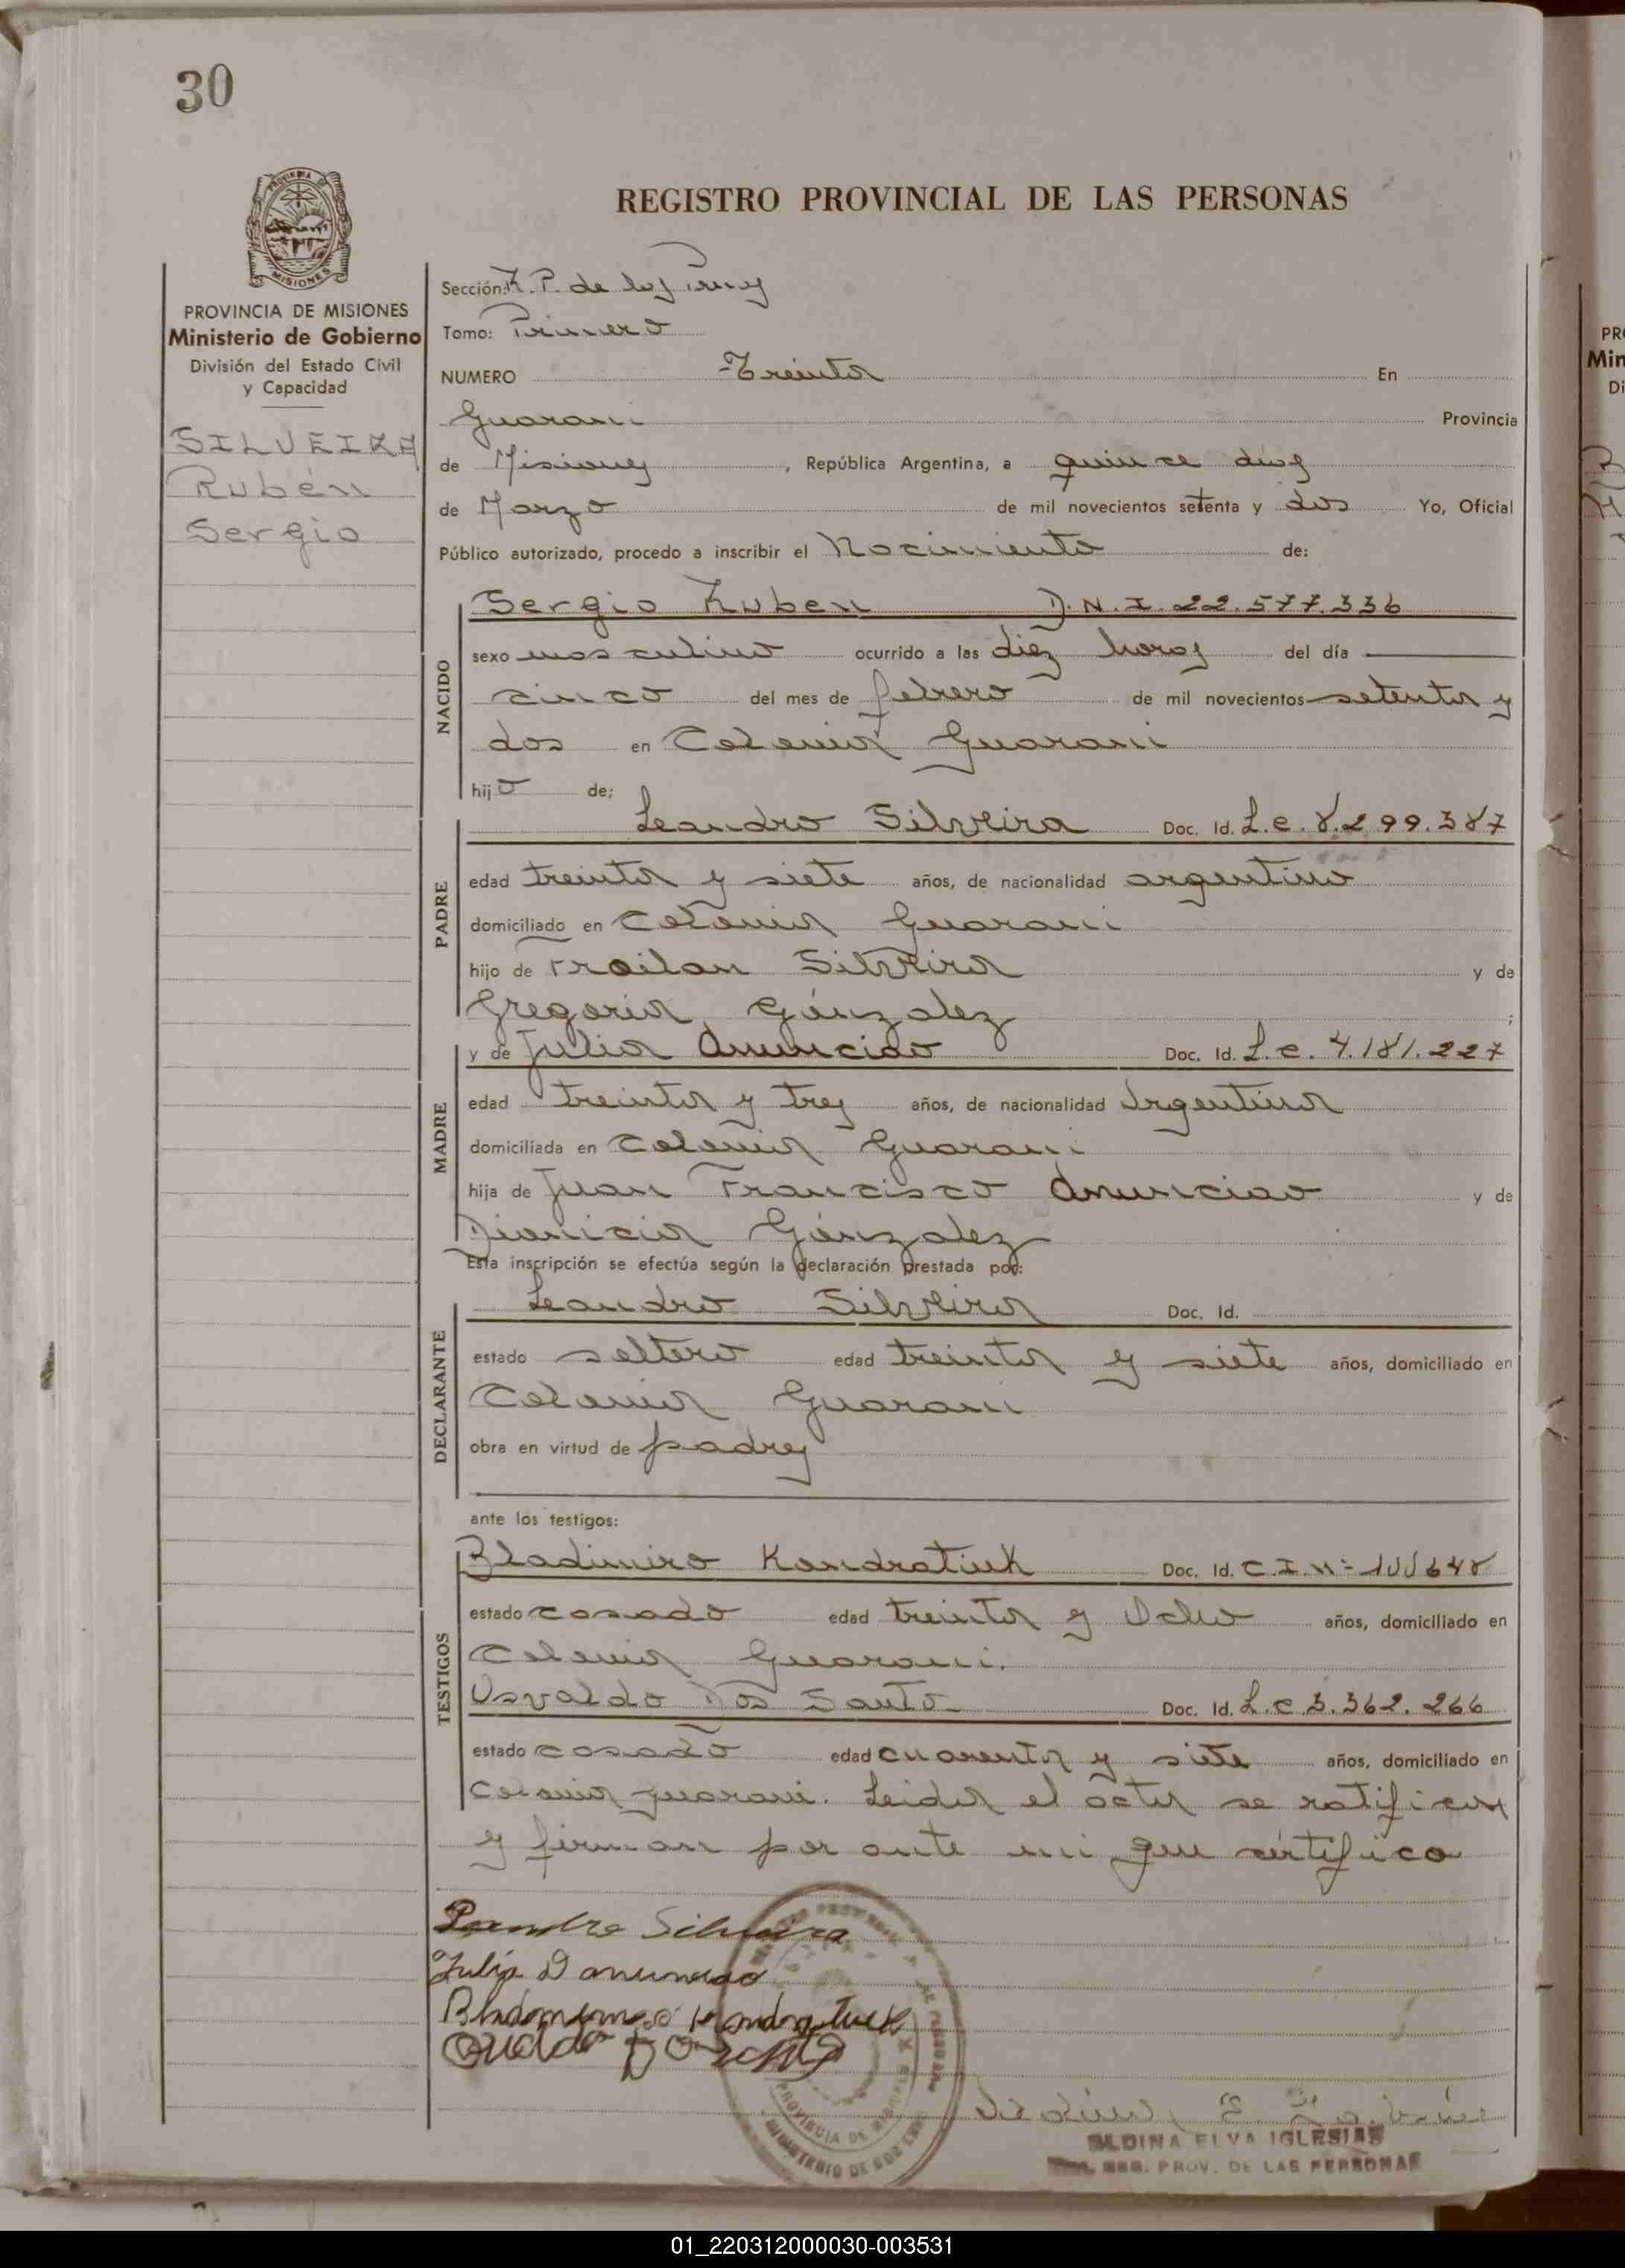 30
PROVINCIA DE MISIONES
Ministerio de Gobierno
División del Estado Civil
y Capacidad
SILVEIRA
Rubén
Sergio
REGISTRO PROVINCIAL DE LAS PERSONAS
Sección: R. P. de las
Tomo: Primero
NUMERO Treinta En
Guarani Provincia
de Misiones, República Argentina, a quince dias
de Marzo de mil novecientos setenta y dos Yo, Oficial
Público autorizado, procedo a inscribir el Nacimiento de:
NACIDO
Sergio Ruben D.N.I. 22.577.336
sexo masculino ocurrido a las diez horas del día
cinco del mes de febrero de mil novecientos setenta y
dos en Colonia Guarani
hijo de;
PADRE
Leandro Silveira Doc. Id. L.e. 8.299.387
edad treinta y siete años, de nacionalidad argentino
domiciliado en Colonia Guarani
hijo de Froilan Silveira y de
Gregoria Gónzalez ;
MADRE
y de Julia Anunciao Doc. Id. L.e. 4.181.227
edad treinta y tres años, de nacionalidad Argentina
domiciliada en Colonia Guarani
hija de Juan Francisco Anunciao y de
Dionicia Gónzalez
Esta inscripción se efectúa según la declaración prestada por:
DECLARANTE
Leandro Silveira Doc. Id.
estado soltero edad treinta y siete años, domiciliado en
Colonia Guarani
obra en virtud de padres
ante los testigos:
TESTIGOS
Bladimiro Kondratiuk Doc. Id. C.I.Nº
estado casado edad treinta y Ocho años, domiciliado en
Colonia Guarani.
Osvaldo Dos Santo Doc. Id. L.e 3.362.266
estado casado edad cuarenta y siete años, domiciliado en
colonia guarani. Leida el acta se ratifican
y firman por ante mi que certifico
Leandro Silveira
Julia D anunciao
PROVINCIA DE MISIONES
MINISTERIO DE
ALDINA ELVA IGLESIAS
REG. PROV. DE LAS PERSONAS
PR
Min
Di
01_220312000030-003531